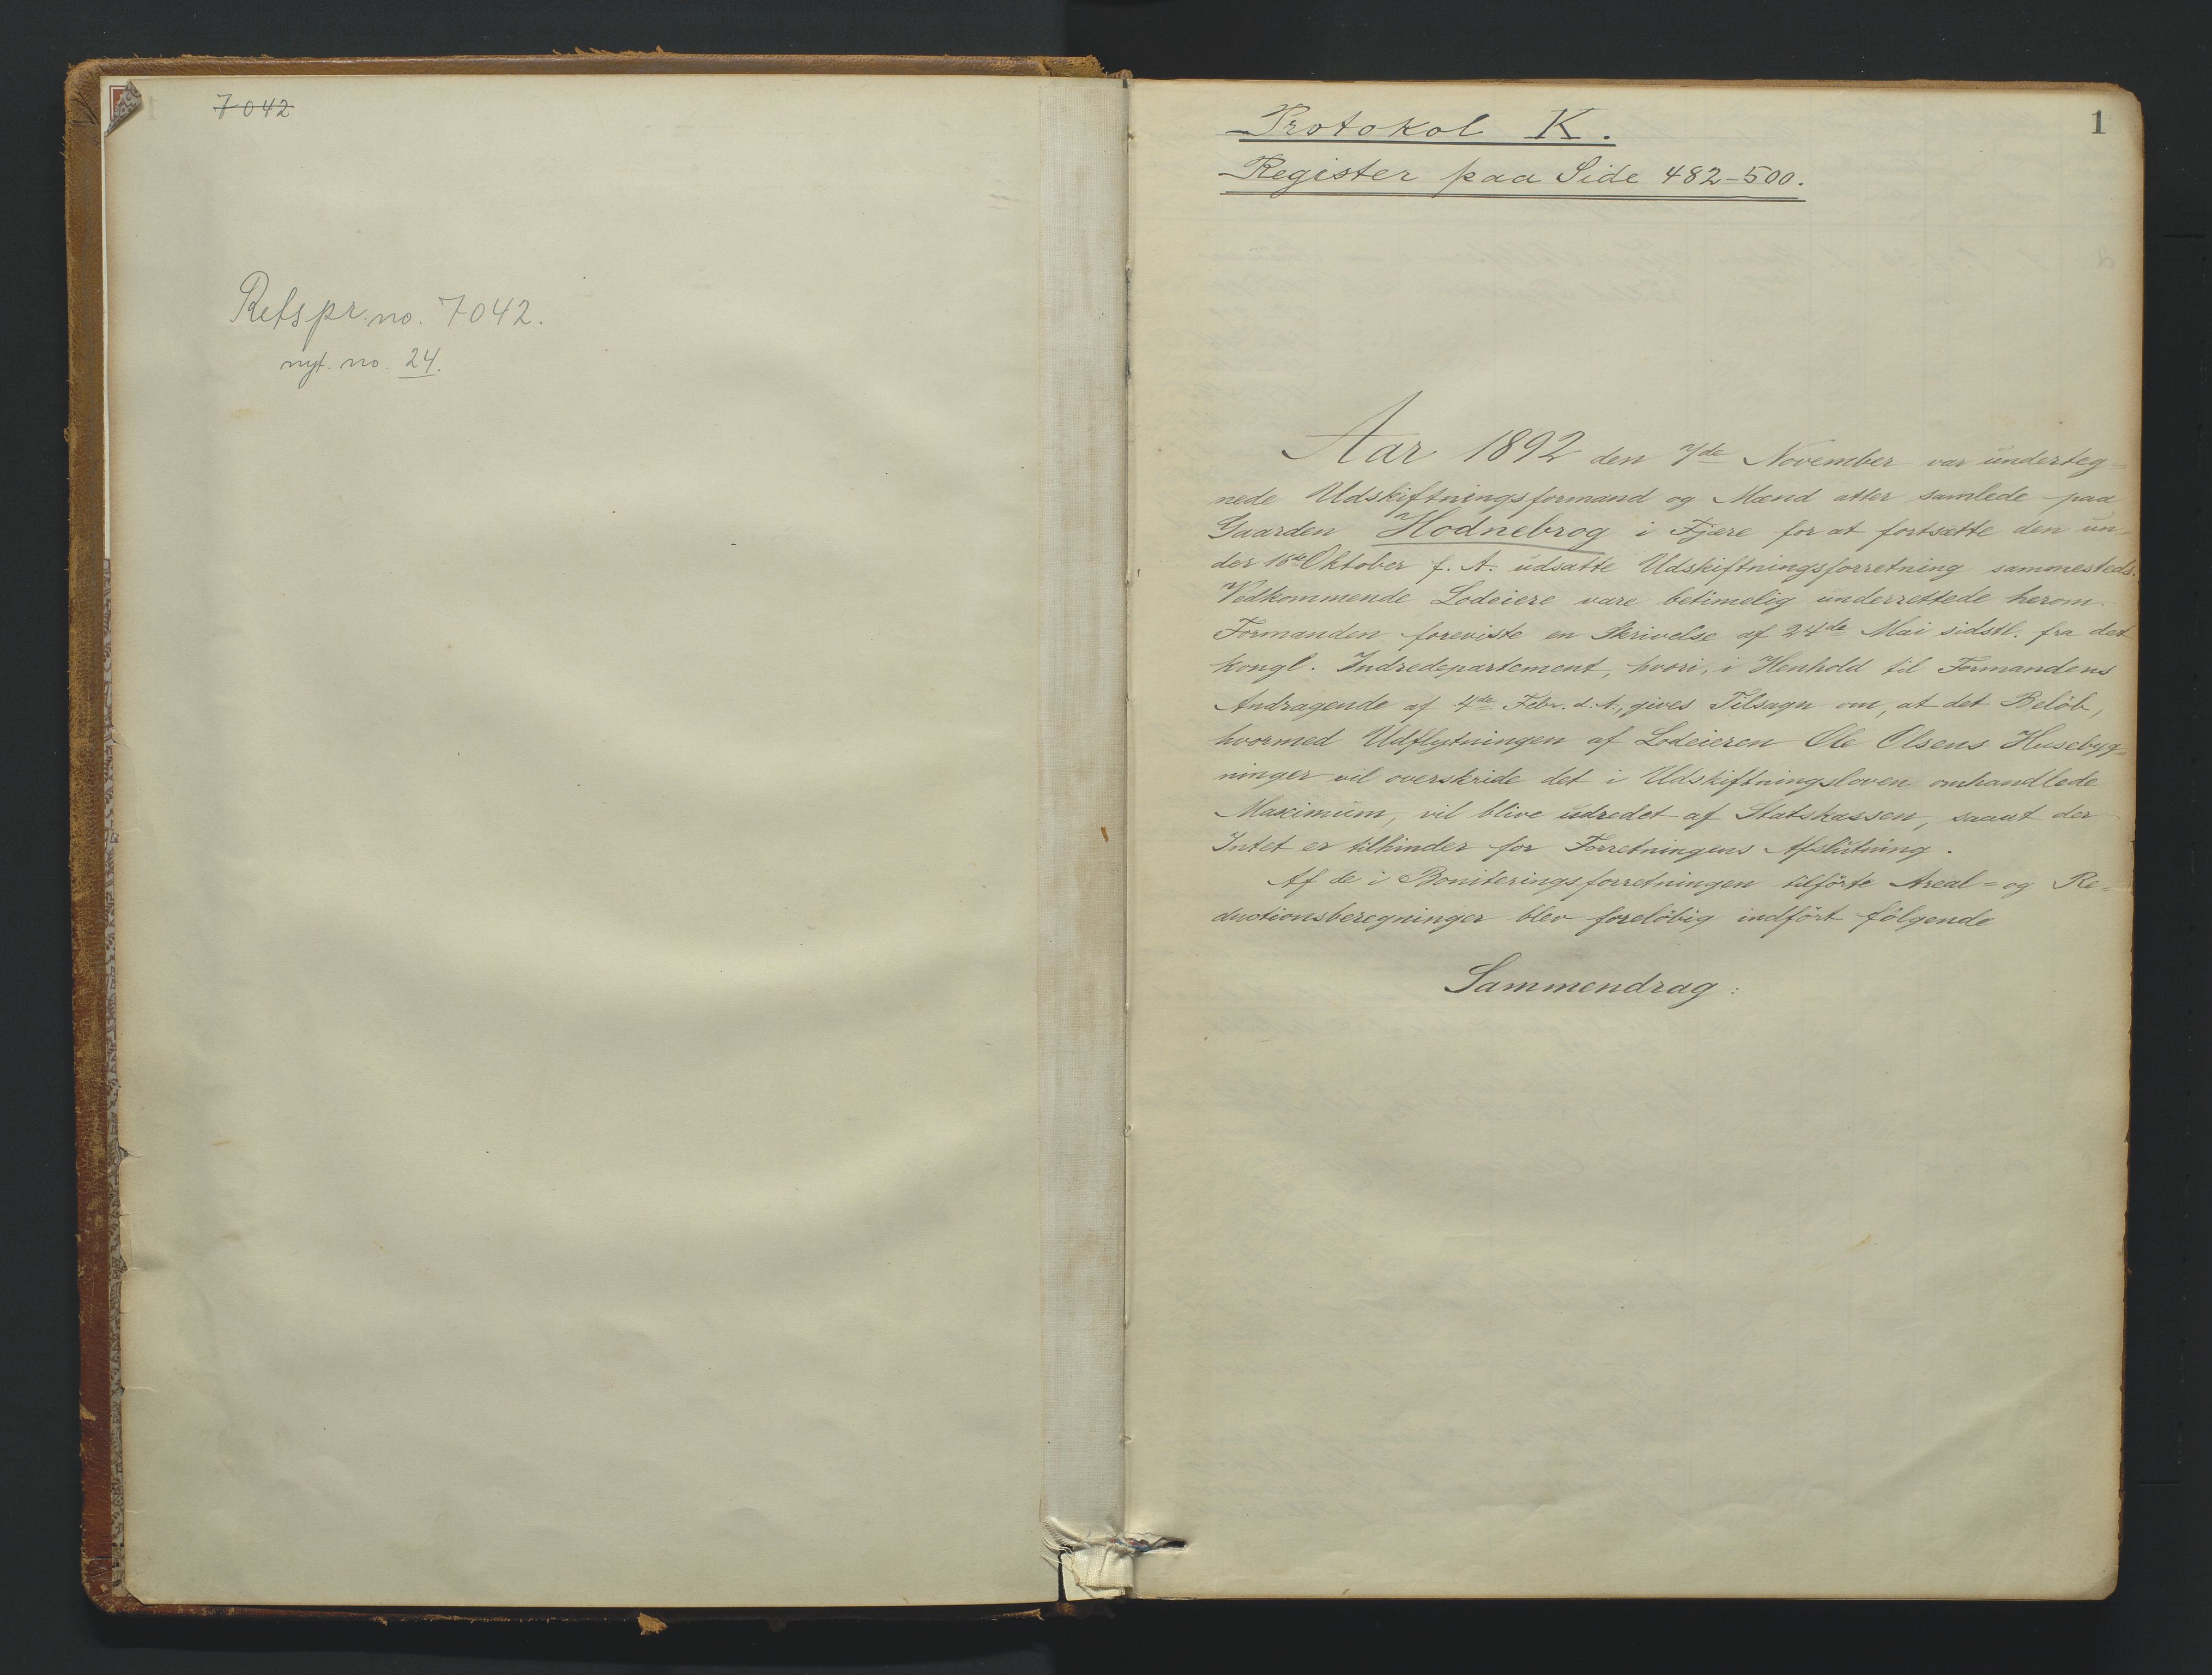 7042
Retspr. no. 7042.
nyt. no. 24.
1
Protokol K.
Register paa Side 482-500.
Aar 1892 den 7de November var underteg=
nede Udskiftningsformand og Mænd atter samlede paa
Gaarden Hodnebrog i Fjære for at fortsætte den un-
der 15de Oktober f. A. udsatte Udskiftningsforretning sammesteds.
Vedkommende Lodeiere vare betimelig underrettede herom.
Formanden foreviste en Skrivelse af 24de Mai sidstl. fra det
kongl. Indredepartement, hvori, i Henhold til Formandens
Andragende af 4de Febr. d. A., gives Tilsagn om, at det Beløb,
hvormed Udflytningen af Lodeieren Ole Olsens Husebyg=
ninger vil overskride det i Udskiftningsloven omhandlede
Maximum, vil blive udredet af Statskassen, saaat der
Intet er tilhinder for Forretningens Afslutning.
Af de i Boniteringsforretningen tilførte Areal= og Re=
ductionsberegninger blev foreløbig indført følgende
Sammendrag: